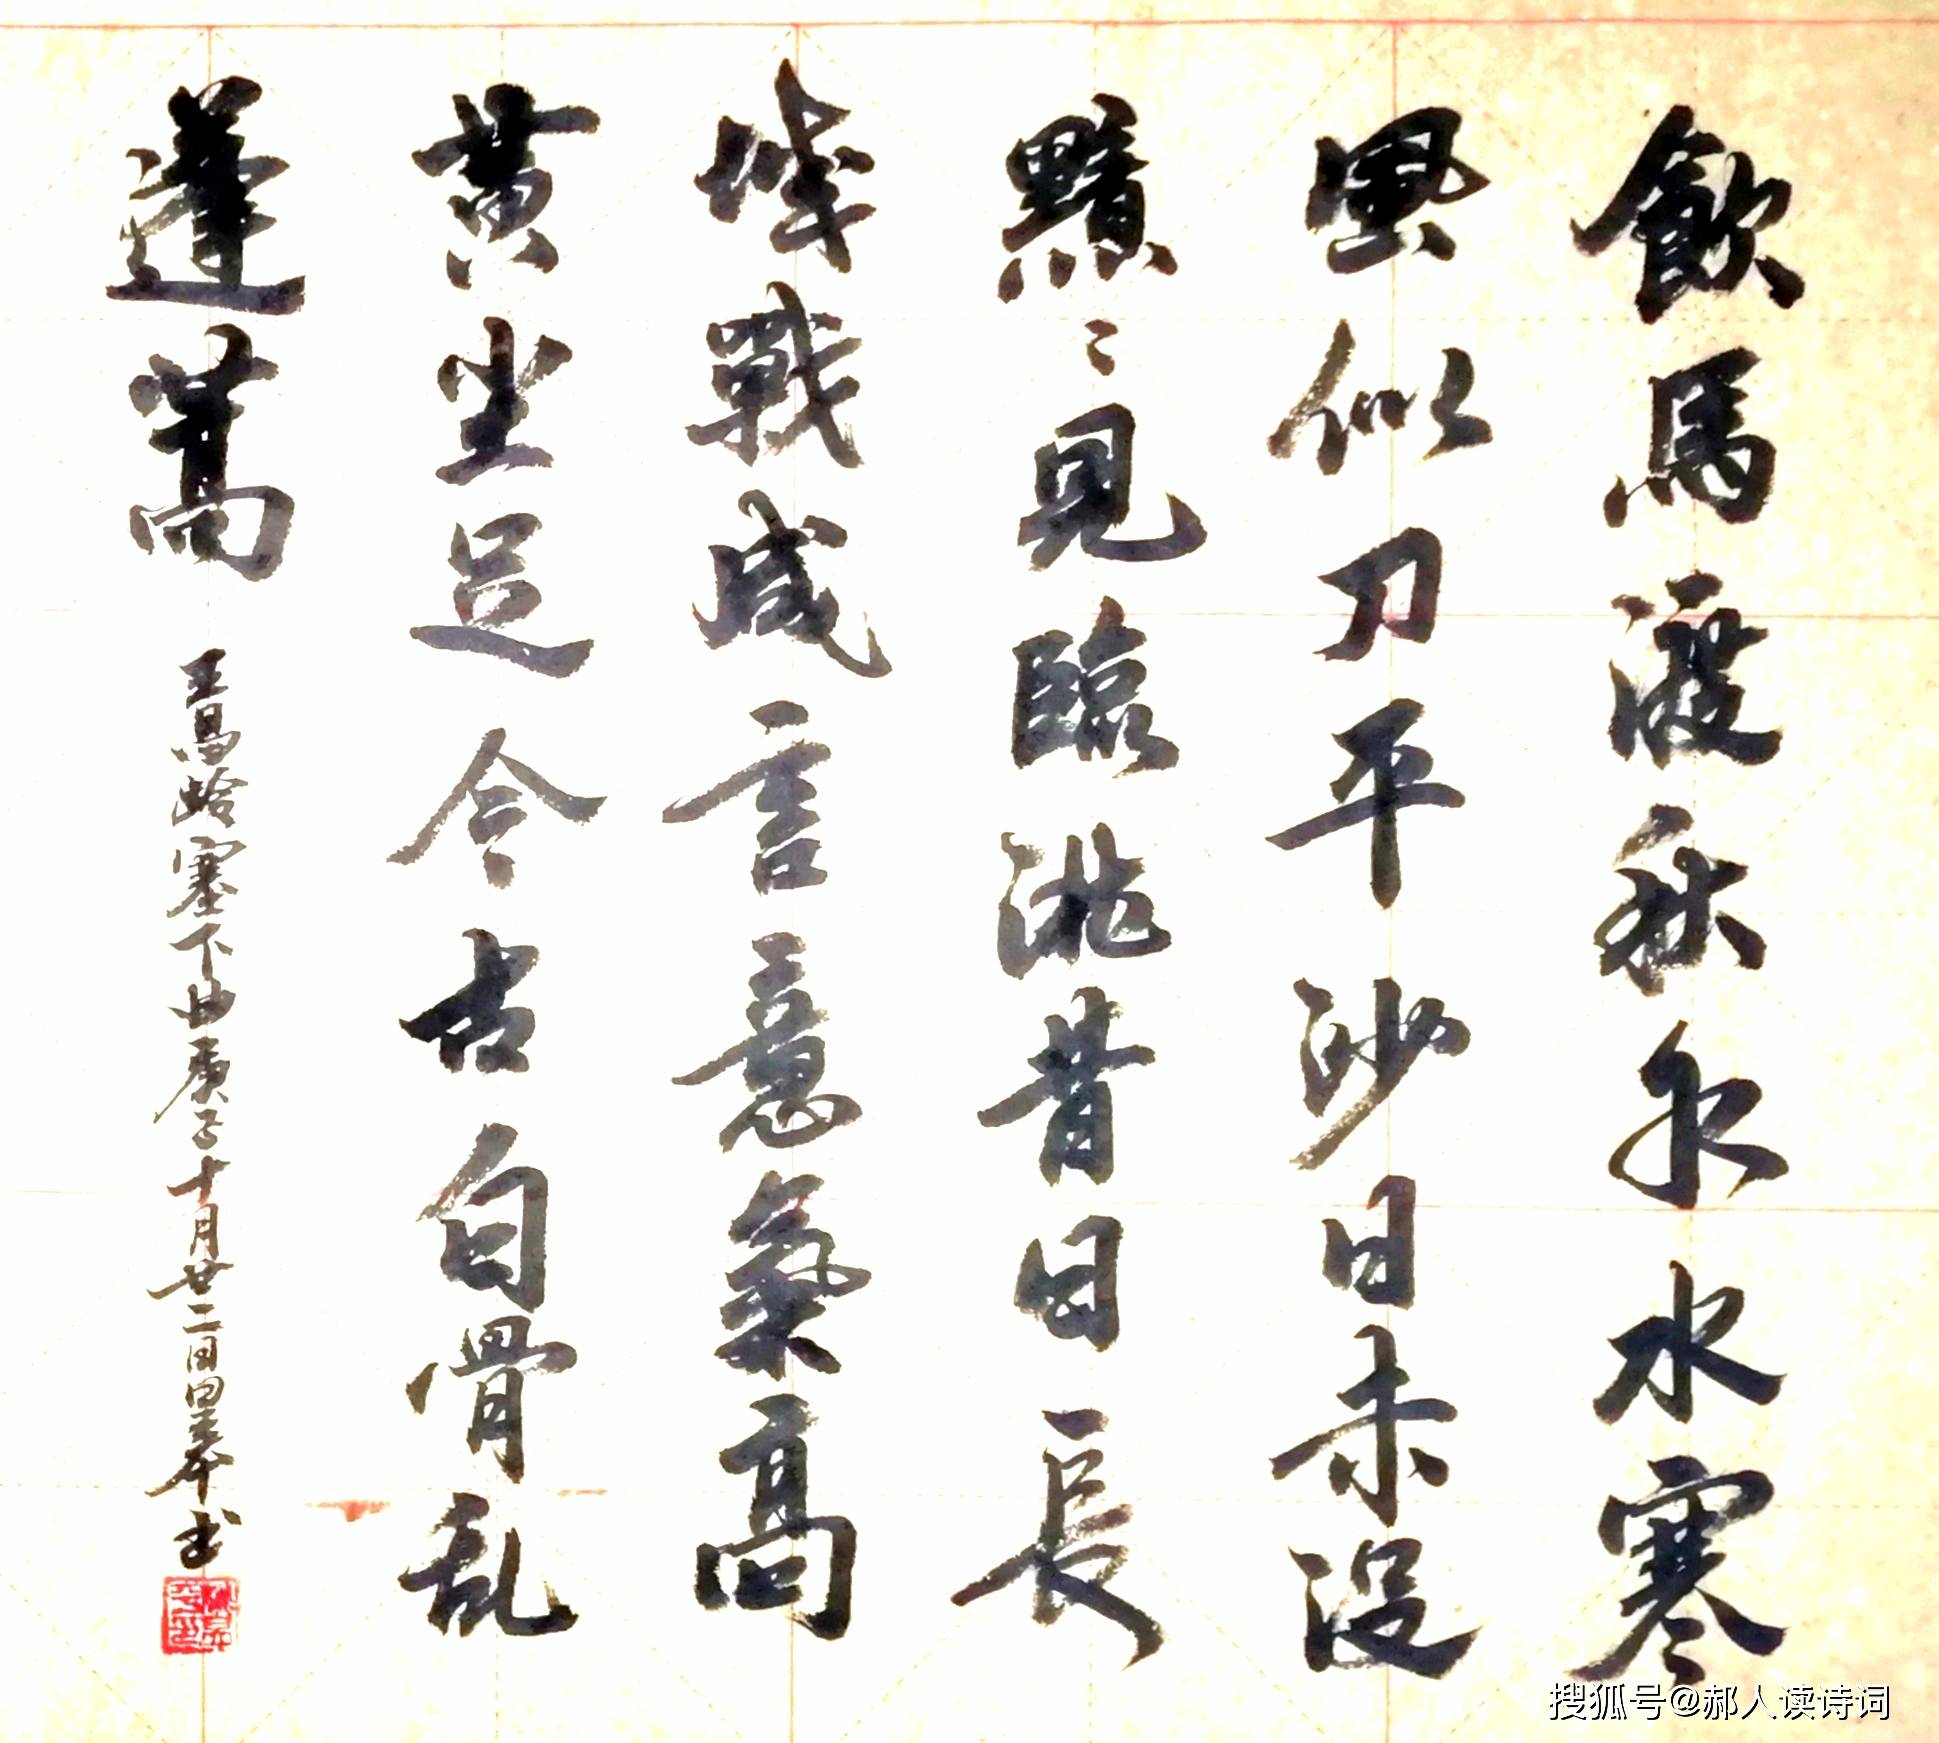 飲馬渡秋水水寒
風似刀平沙日未没
黯〻見臨洮昔日長
城戰咸言意氣高
黄尘足今古白骨乱
蓬蒿
王昌齡塞下曲庚子十月廿二日书
搜狐号@郝人读诗词